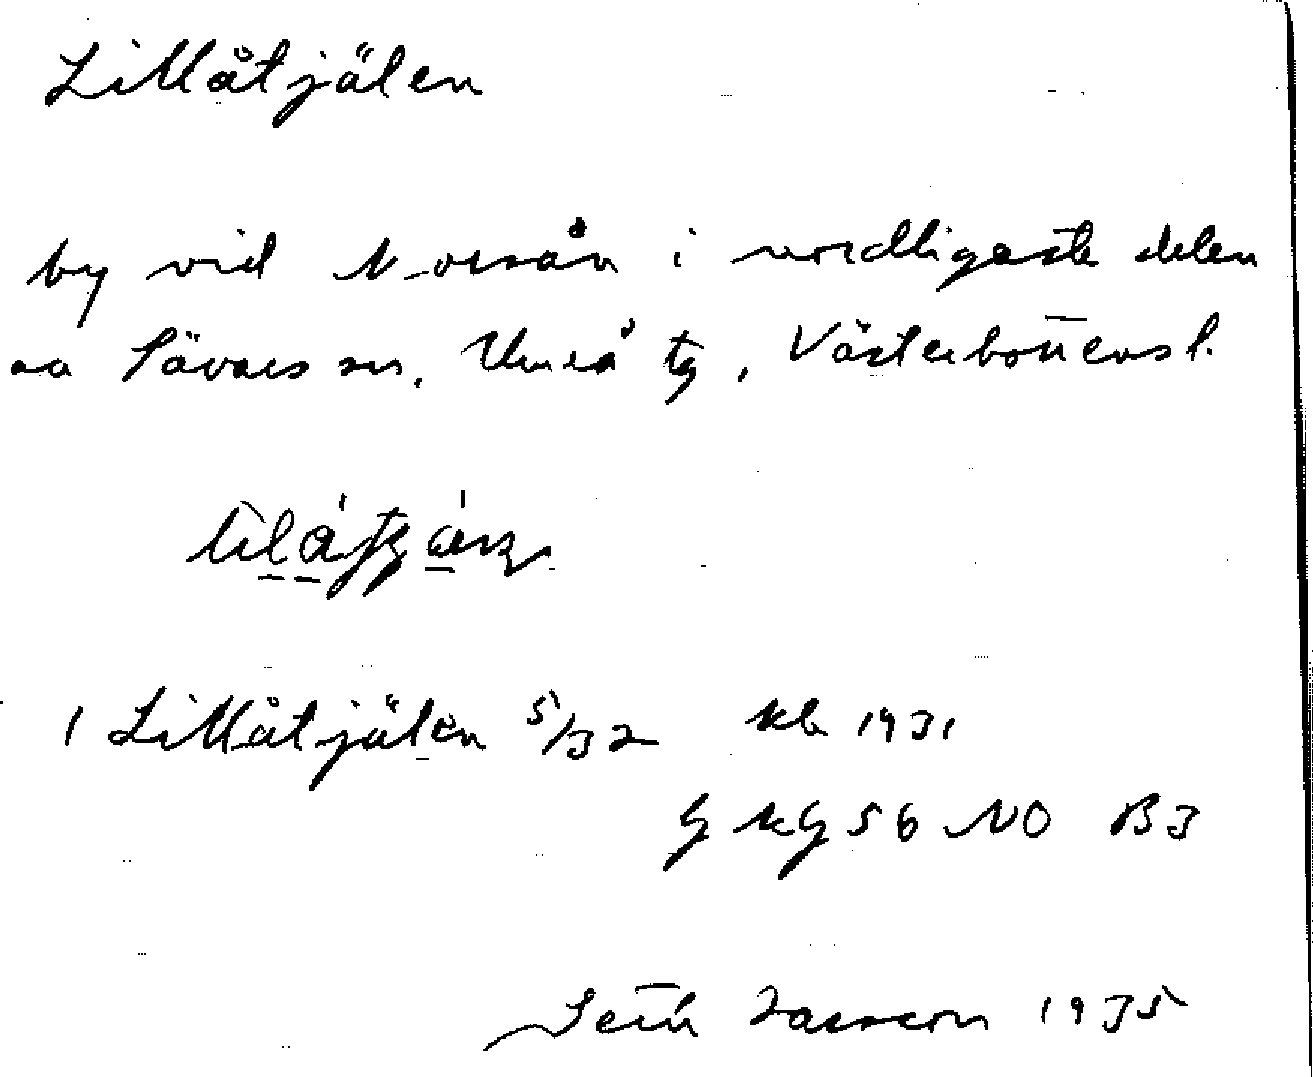 Lillåtjälen
by vid Norsån i nordligaste delen
av Sävars sn, Umeå tg, Västerbottens l.
1 Lillåtjälen 5/32 kb 1931
G kG 56 NO B3
Seth Larsson 1935